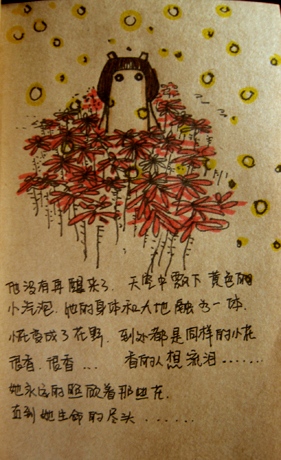 他没有再醒来了. 天空中飘下黄色的
小汽泡. 她的身体和大地融为一体.
小花变成了花野. 到处都是同样的小花
很香. 很香... 香的人想流泪.......
她永远的照顾着那些花.
直到她生命的尽头......